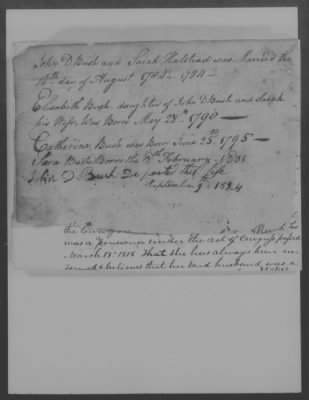 John D Bush and Sarah Halstead was Married the
14th day of August 1784 - 1784 -
Elisabeth Bush daughter of John D Bush and Sarah
his Wife, Was Born May 28th 1790 —
Catherine, Bush was Born June 25th 1795 —
Sara Bush Born the 8th February - 1801
John D Bush Departed this Life
September 9 1824
the
was a pensioner under the act of Congress passed
March 18th 1818 That she has always been in
formed & believes that her said husband was a